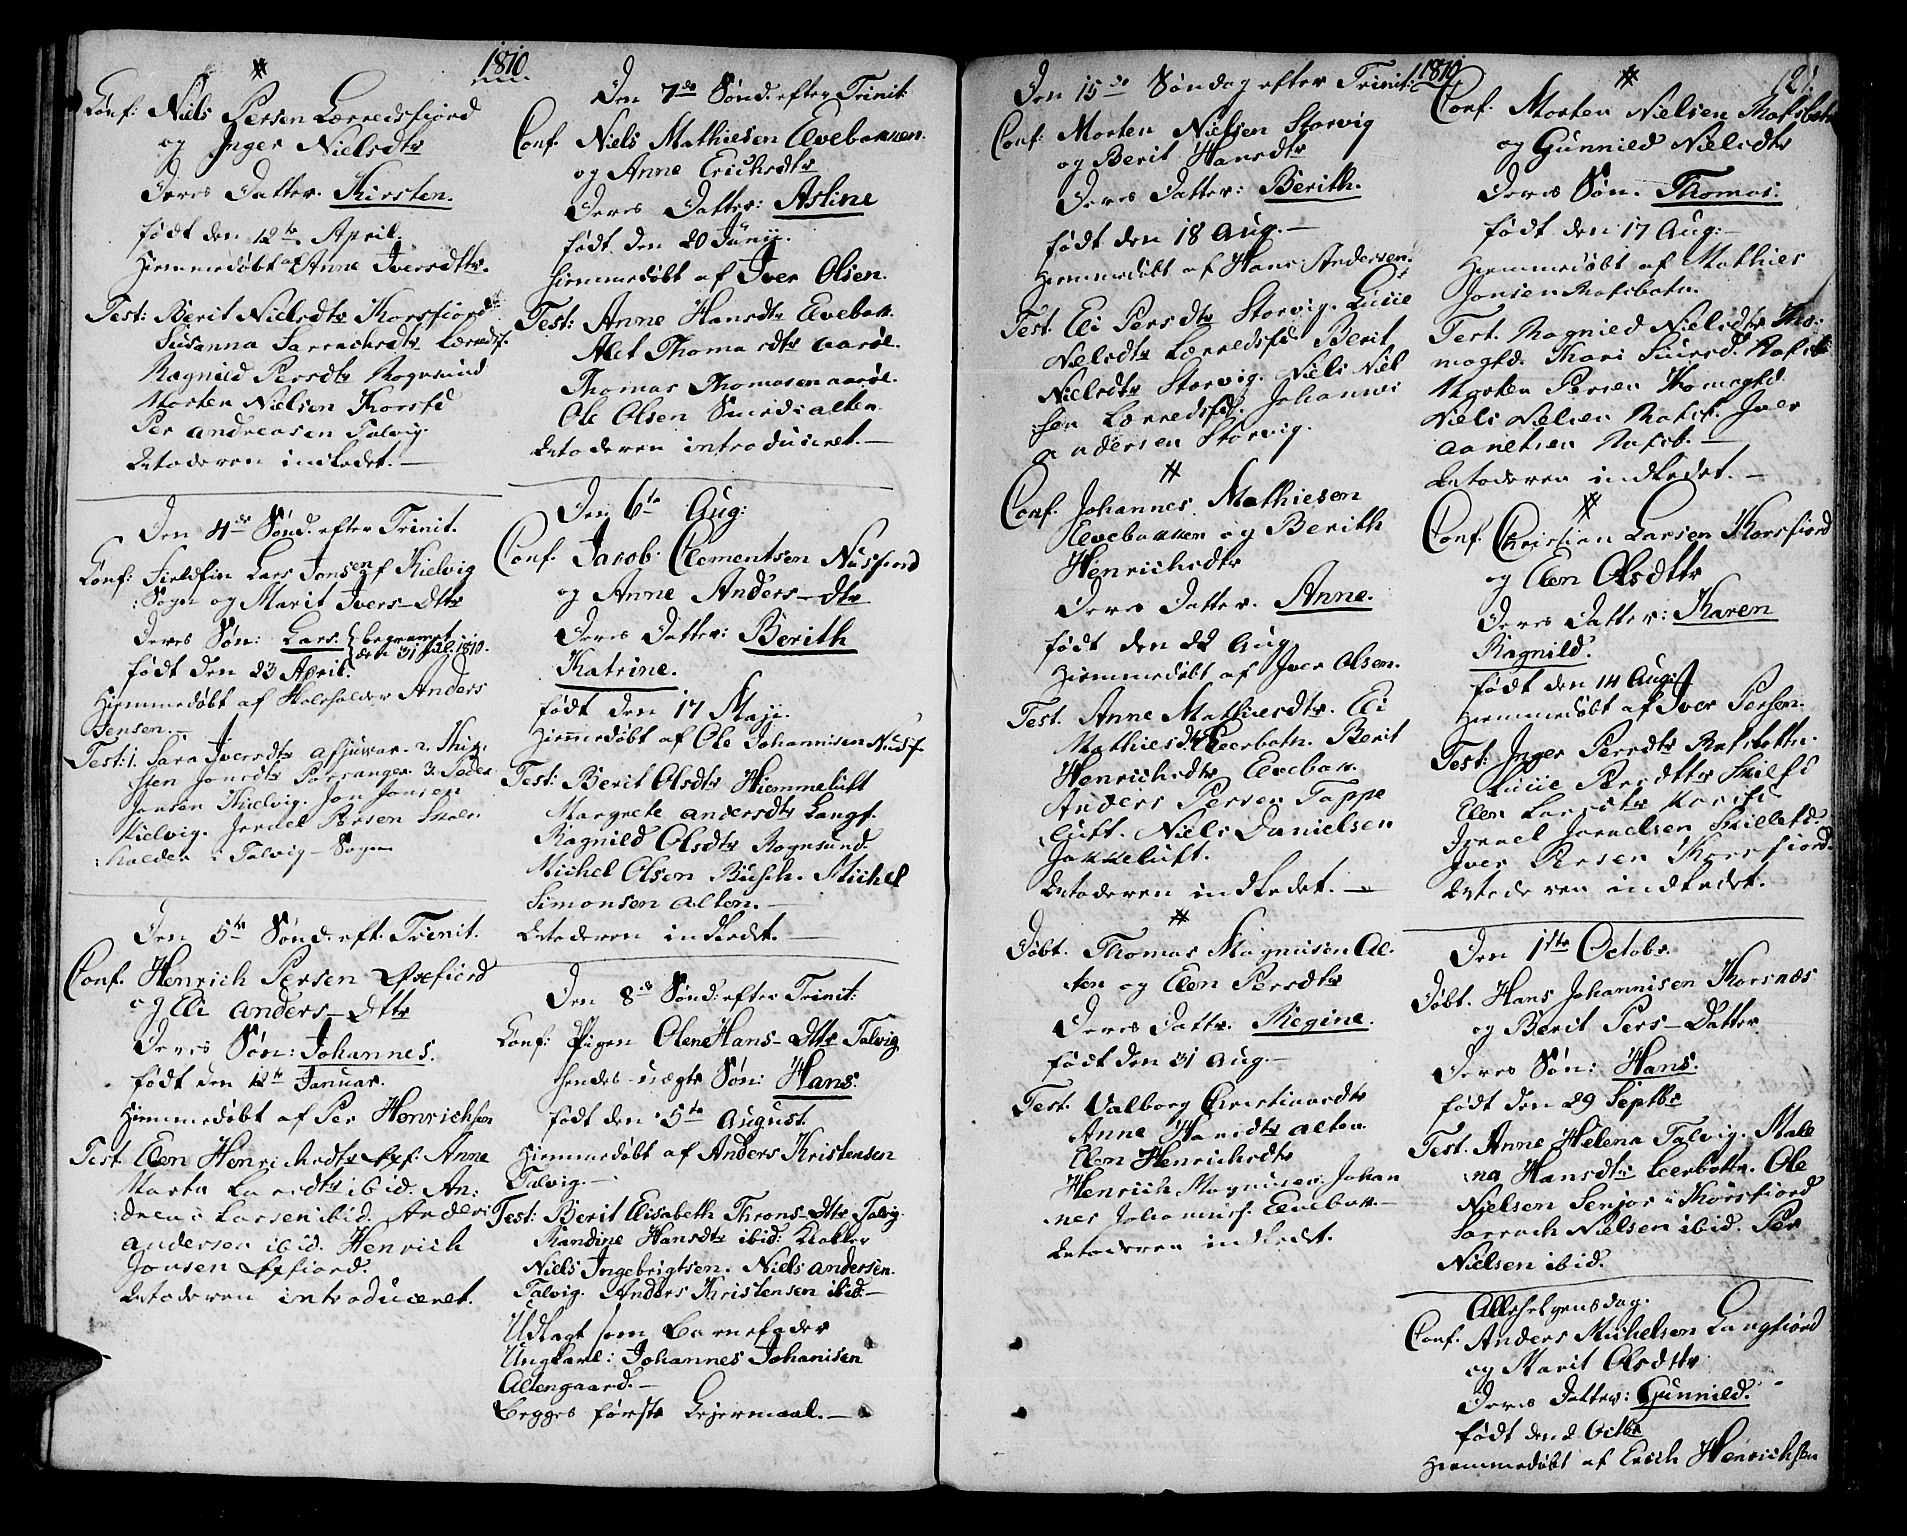 1810
Conf: Niels Persen Lerredsfiord
og Inger Nielsdtr
Deres Datter. Kirsten.
født den 12te April.
Hiemmedøbt af Anne Iversdttr.
Test: Berit Nielsdtr Korsfiord
Susanna Sarrachsdtr Lerredsf.
Ragnild Persdtr Rognsund
Morten Nielsen Korsfd
Per Andreasen Talvig.
Modderen indledet. —
Den 4de Sønd: efter Trinit.
Conf: Fieldfin Lars Jonsen af Kielvig
Sogn og Marit Ivers-Dttr
Deres Søn: Lars. begravet
den 31 Jul. 1810.
født den 23 April.
Hiemmedøbt af Skoleholder Anders
Jensen. —
Test: 1. Sara Iversdtr 2. Kir,
sten Jonsdtr Porsanger 3. Peder
Jensen Kielvig. Jon Jonsen
Kielvig. Israel Persen Skole-
holder i Talvig-Sogn
Den 5te Sønd: eft. Trinit.
Conf. Henrich Persen Øxefiord
og Eli Anders-Dttr
Deres Søn: Johannes.
født den 12te Januar.
Hiemmedøbt af Per Henrichsen
Test. Elen Henrichsdtr Øxf. Anne
Marta Larsdtr ibid. An:
dreas Larsen ibid. Anders
Andersen ibid. Henrich
Jonsen Øxfiord.
Modderen introduceret.
Den 7de Sønd: efter Trinit:
Conf. Niels Mathiesen Elvebakken.
og Anne Erichsdtr
Deres Datter: Asline
født den 20 Junij.
hiemmedøbt af Iver Olsen.
Test: Anne Hansdtr Elvebak.
Alet Thomasdtr Aarøe.
Thomas Thomasen Aarøe.
Ole Olsen Smed i Alten.
Modderen introduceret. —
Den 6te Aug:
Conf. Jacob Clementsen Nusfiord
og Anne Anders-dtr
Deres Datter: Berith
Katrine.
født den 17 Maji.
Hiemmedøbt af Ole Johannisen Nusf.
Test: Berit Olsdtr Hiemmeluft
Margrete Andersdtr Langf.
Ragnild Olsdtr Rognsund.
Michel Olson Busch. Michel
Simonsen Alten. —
Modderen indledet. —
Den 8de Sønd: efter Trinit:
Conf: Pigen Olene Hans-Dttr Talvig
hendes uægte Søn: Hans.
født den 5te August.
Hiemmedøbt af Anders Kristensen
Talvig. —
Test: Berit Elisabeth Throns-Dttr Talvig.
Randine Hansdtr ibid: Klokker
Niels Ingebrigtsen. Niels Andersen.
Talvig. Anders Kristensen ibid. —
Udlagt som Barnefader
Ungkarl: Johannes Johanisen
Altengaard. —
Begges første Leiermaal. —
1810
121.
Den 15de Søndag efter Trinit:
Conf: Morten Nielsen Storvig
og Berit Hansdtr
Deres Datter: Berith.
født den 18 Aug. —
Hiemmedøbt af Hans Andersen.
Test. Eli Persdtr Storvig. Lucie
Nielsdtr Lerredsfd. Berit
Nielsdtr Storvig. Niels Niel
sen Lerredsfd. Johannes
Andersen Storvig.
Conf. Johannes Mathiesen
Elvebakken og Berith
Henrichsdtr
Deres Datter. Anne.
født den 22 Aug
Hiemmedøbt af Iver Olsen.
Test. Anne Mathiesdtr. Eli
Mathiesdtr Leerbotn. Berit
Henrichsdtr Elvebak.
Anders Persen Tappe
luft. Niels Danielsen
Jokkeluft.
Modderen indledet. —
Døbt. Thomas Magnusen Al-
ten og Elen Persdtr
Deres Datter. Regine.
født den 31 Aug. —
Test. Valborg Christiansdtr
Anne Hansdtr Alten.
Elen Henrichsdtr
Henrich Magnusen. Johan
nes Johannisf. Elvebak. —
Modderen indledet.
Conf. Morten Nielsen Rafsbotn
og Gunnild Nielsdtr
Deres Søn. Thomas.
født den 17 Aug. —
Hiemmedøbt af Mathies
Jonsen Rafsbotn.
Test. Ragnild Nielsdtr Ko:
magfd. Kari Siursd. Rafsb.
Morten Persen Komagfd.
Niels Nielsen Rafsb. Iver
Aanetsen Rafsb. —
Modderen indledet. —
Conf. Christian Larsen Korsfiord
og Elen Olsdttr
Deres Datter: Karen
Ragnild.
født den 14 Aug:
Hiemmedøbt af Iver Persen.
Test: Inger Persdtr Rafsbotten.
Lucie Persdttr Skillefd
Elen Larsdtr Korsfd
Israel Israelsen Skillefd.
Iver Persen Korsfiord.
Modderen indledet.
Den 1ste Octobr.
Døbt. Hans Johannisen Korsnæs
og Berit Pers-Datter
Deres Søn: Hans.
født den 29 Septbr
Test. Anne Helena Talvig. Male
na Hansdtr Leerbotn. Ole
Nielsen Senjor i Korsfiord
Sarrach Nielsen ibid. Per
Nielsen ibid.
Allehelgensdag.
Conf. Anders Michelsen Langfiord
og Marit Olsdttr
Deres Datter: Gunnild.
født den 2 Octbr
Hiemmedøbt af Erich Henrichsen